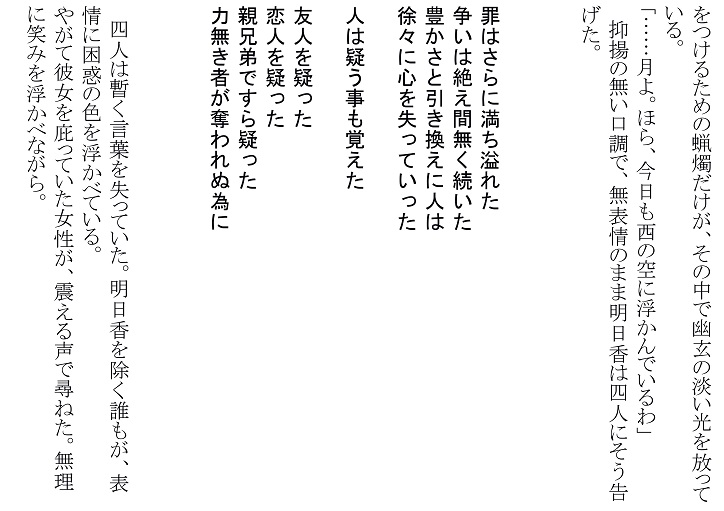 をつけるための蝋燭だけが、その中で幽玄の淡い光を放って
いる。
「……月よ。ほら、今日も西の空に浮かんでいるわ」
抑揚の無い口調で、無表情のまま明日香は四人にそう告
げた。
罪はさらに満ち溢れた
争いは絶え間無く続いた
豊かさと引き換えに人は
徐々に心を失っていった
人は疑う事も覚えた
友人を疑った
恋人を疑った
親兄弟ですら疑った
力無き者が奪われぬ為に
四人は暫く言葉を失っていた。明日香を除く誰もが、表
情に困惑の色を浮かべている。
やがて彼女を庇っていた女性が、震える声で尋ねた。無理
に笑みを浮かべながら。